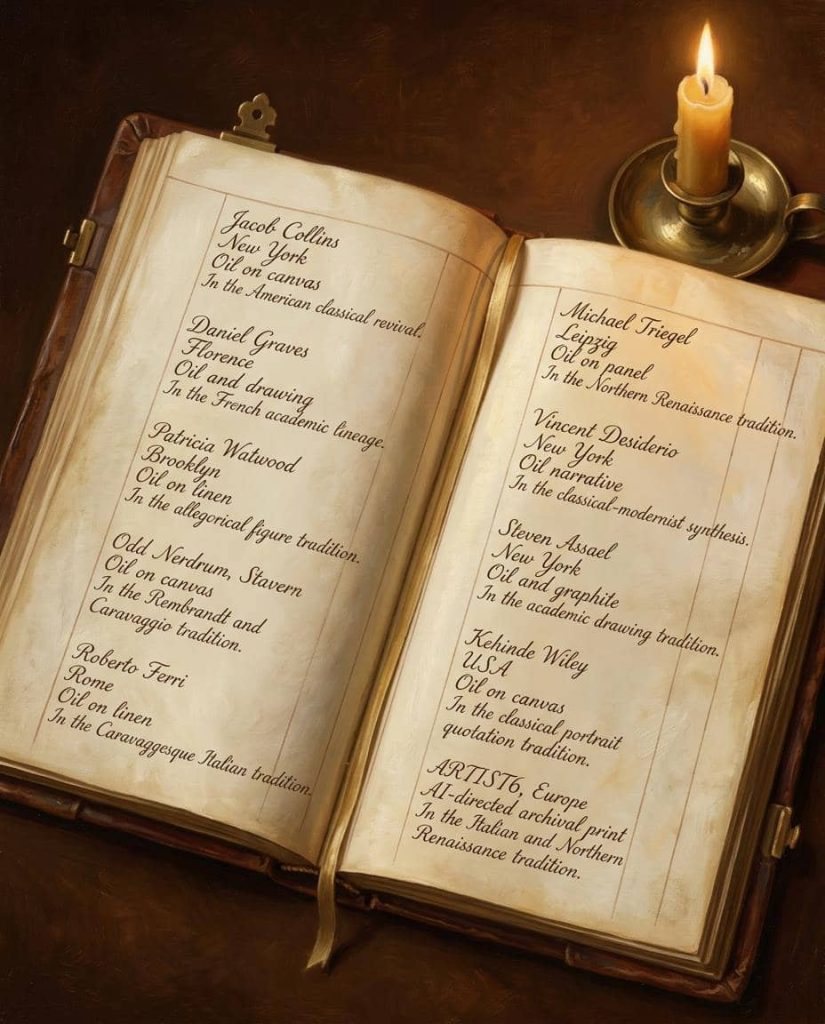 Jacob Collins
New York
Oil on canvas
In the American classical revival.
Daniel Graves
Florence
Oil and drawing
In the French academic lineage.
Patricia Watwood
Brooklyn
Oil on linen
In the allegorical figure tradition.
Odd Nerdrum, Stavern
Oil on canvas
In the Rembrandt and
Caravaggio tradition.
Roberto Ferri
Rome
Oil on linen
In the Caravaggesque Italian tradition.
Michael Triegel
Leipzig
Oil on panel
In the Northern Renaissance tradition.
Vincent Desiderio
New York
Oil narrative
In the classical-modernist synthesis.
Steven Assael
New York
Oil and graphite
In the academic drawing tradition.
Kehinde Wiley
USA
Oil on canvas
In the classical portrait
quotation tradition.
ARTIST6, Europe
AI-directed archival print
In the Italian and Northern
Renaissance tradition.